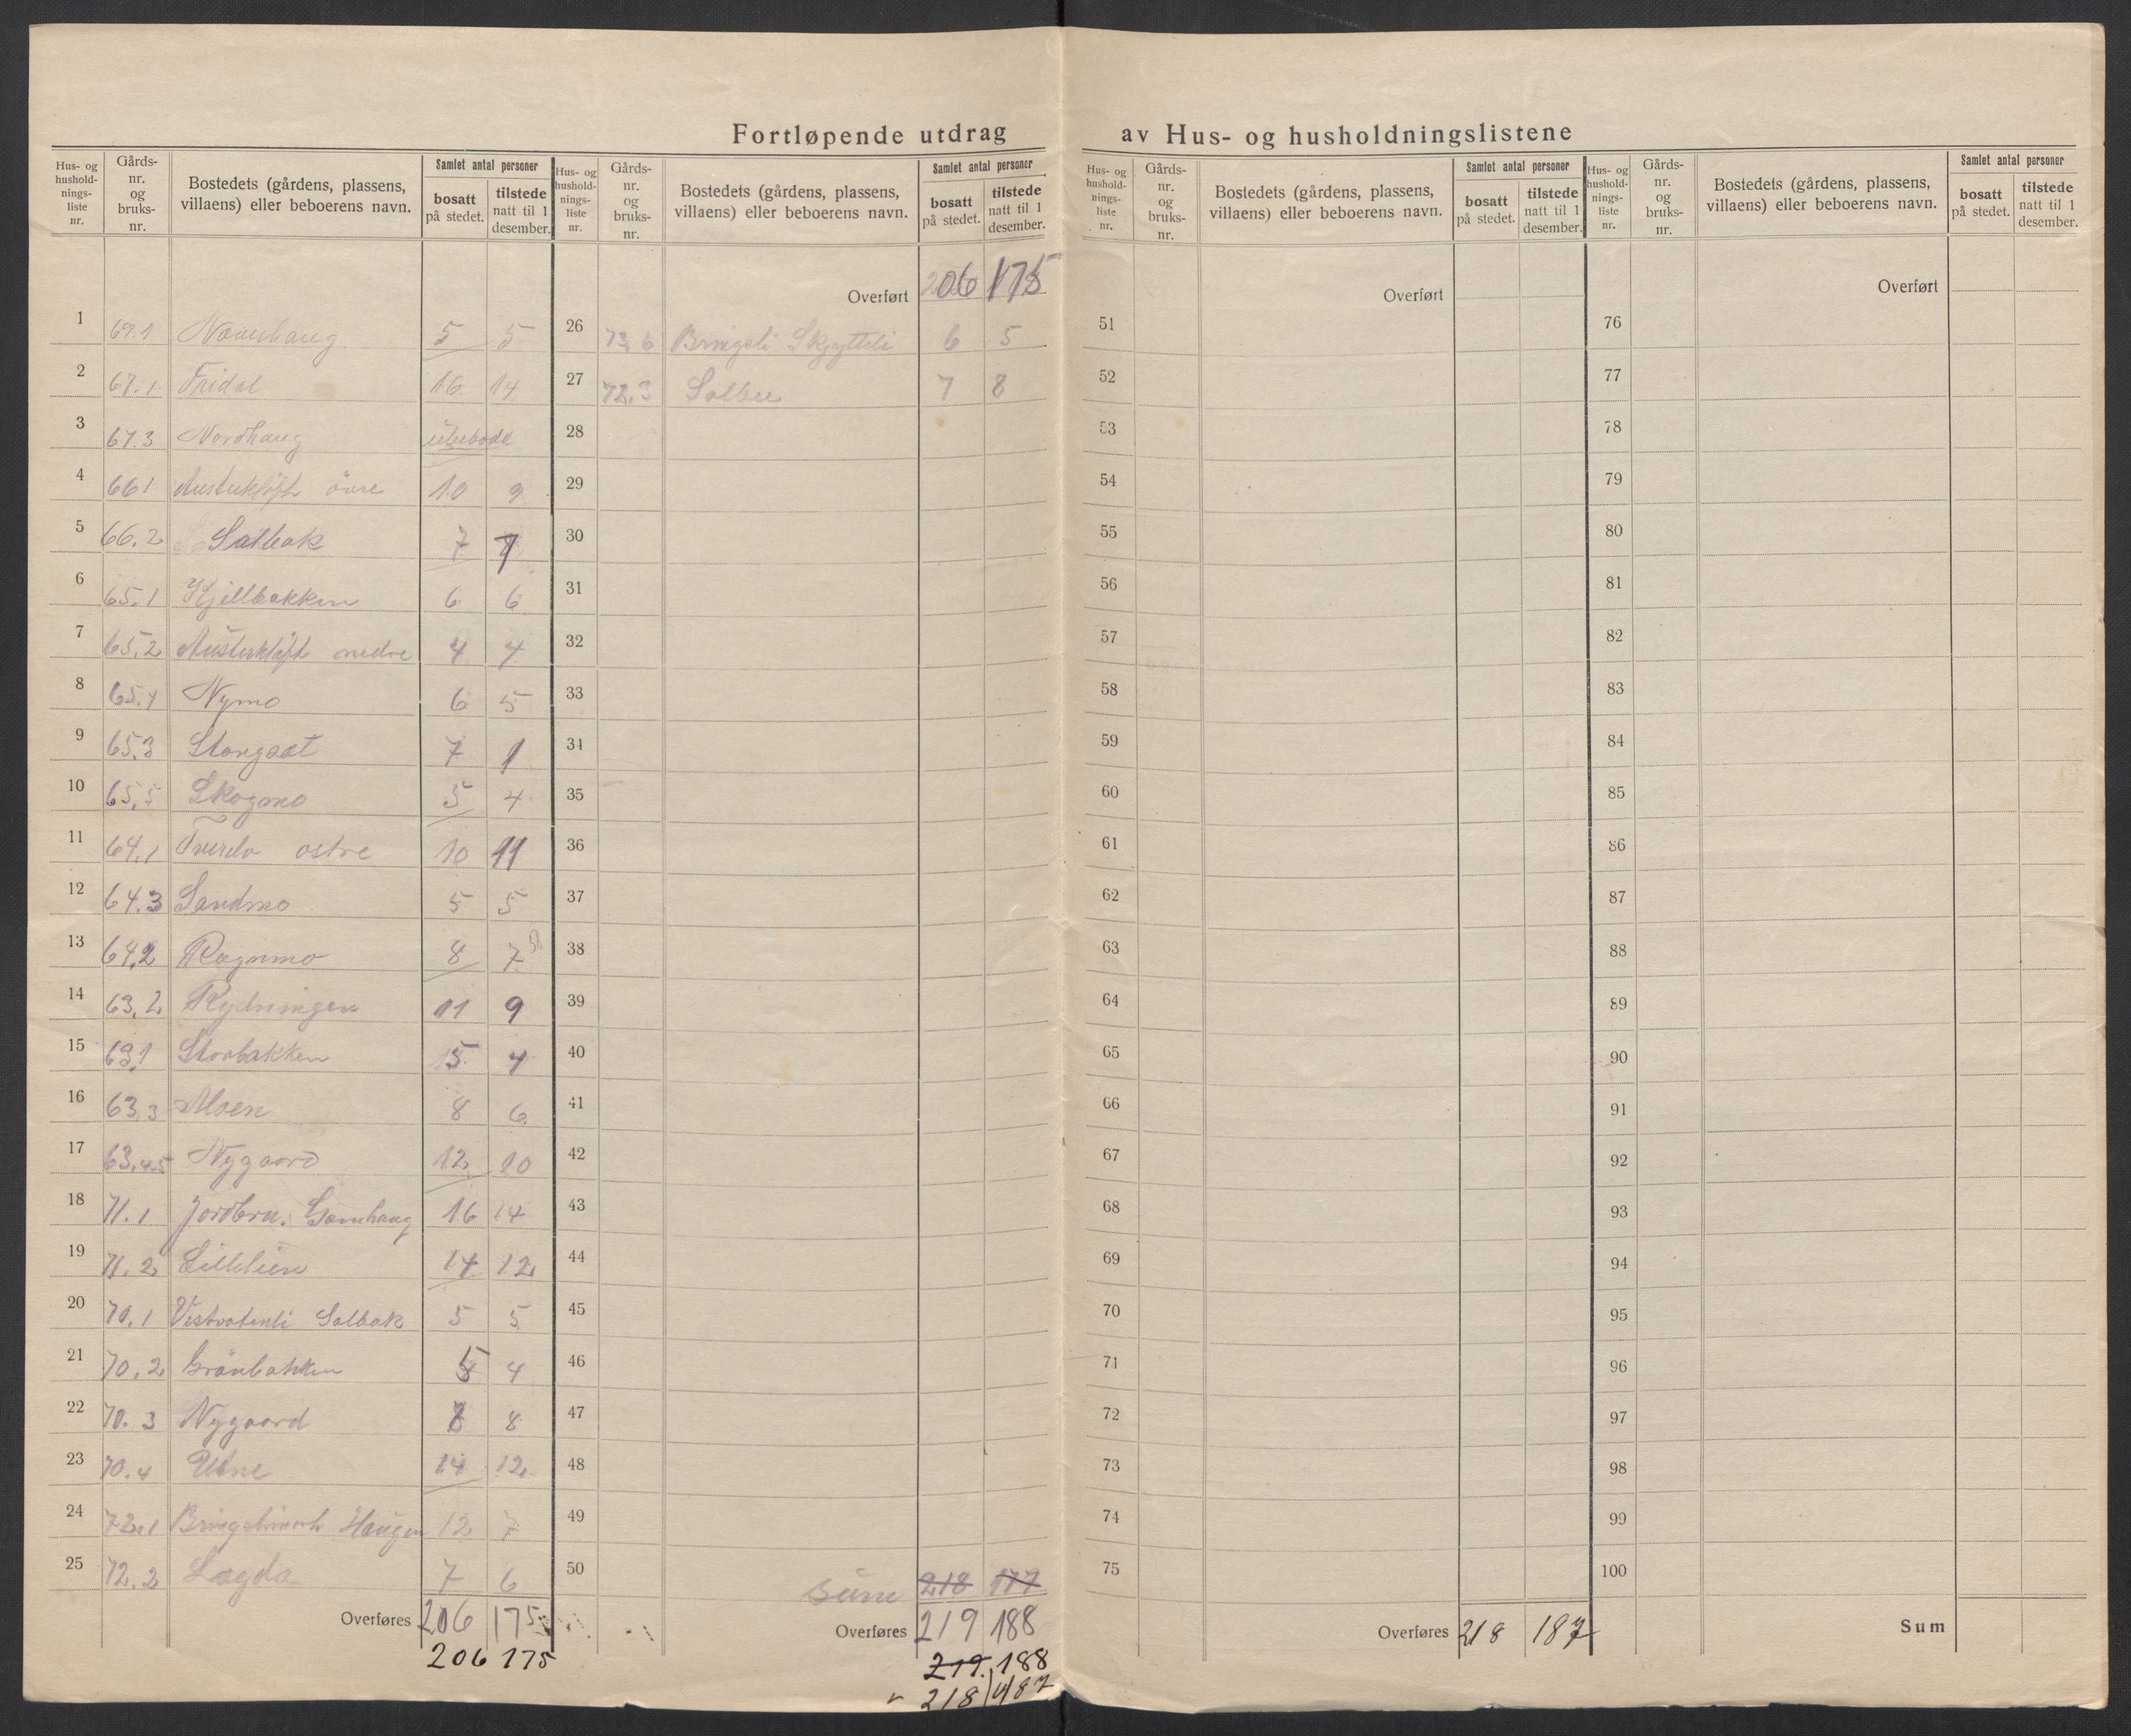 Fortløpende utdrag av Hus- og husholdningslistene
Hus- og husholdningsliste nr. | Gårds- nr. og bruks- nr. | Bostedets (gårdens, plassens, villaens) eller beboerens navn. | Samlet antal personer | bosatt på stedet. | tilstede natt til 1 desember.
Hus- og husholdningsliste nr. | Gårds- nr. og bruks- nr. | Bostedets (gårdens, plassens, villaens) eller beboerens navn. | Samlet antal personer | bosatt på stedet. | tilstede natt til 1 desember.
Hus- og husholdningsliste nr. | Gårds- nr. og bruks- nr. | Bostedets (gårdens, plassens, villaens) eller beboerens navn. | Samlet antal personer | bosatt på stedet. | tilstede natt til 1 desember.
Hus- og husholdningsliste nr. | Gårds- nr. og bruks- nr. | Bostedets (gårdens, plassens, villaens) eller beboerens navn. | Samlet antal personer | bosatt på stedet. | tilstede natt til 1 desember.
1 69.1 5 5
2 67.1 Fridal 16 14
3 67.3 Nordhaug ubebodd
4 66.1 Austerkløft övre 10 9
5 66.2 Solbak 7 7
6 65.1 Kjellbakken 6 6
7 65.2 Austerkløft nedre 4 4
8 65.4 Nymo 6 5
9 65.3 7 1
10 65.5 Skogmo 5 4
11 64.1 ostre 10 11
12 64.3 Sandmo 5 5
13 64.2 Rognmo 8 7
14 63.2 Rydningen 11 9
15 63.1 Storbakken 5 4
16 63.3 Moen 8 6
17 63.4.5 Nygaard 12 10
18 71.1 Jordbru. 16 14
19 71.2 Lillelien 14 12
20 70.1 Vestvatenli Solbak 5 5
21 70.2 Grönbakken 5 4
22 70.3 Nygaard 8
23 70.4 Utne 14 12
24 Haugen 12 7
25 72.2 Lagda 7 6
Overføres 206 175
206 175
Overført 206 175
26 73.6 Bringsli Skjyttli 6 5
27 72.3 7 8
28
29
30
31
32
33
34
35
36
37
38
39
40
41
42
43
44
45
46
47
48
49
50
Sum 218 177
Overføres 219 188
219. 188
218 187
Overført
51
52
53
54
55
56
57
58
59
60
61
62
63
64
65
66
67
68
69
70
71
72
73
74
75
Overføres 218 187
Overført
76
77
78
79
80
81
82
83
84
85
86
87
88
89
90
91
92
93
94
95
96
97
98
99
100
Sum